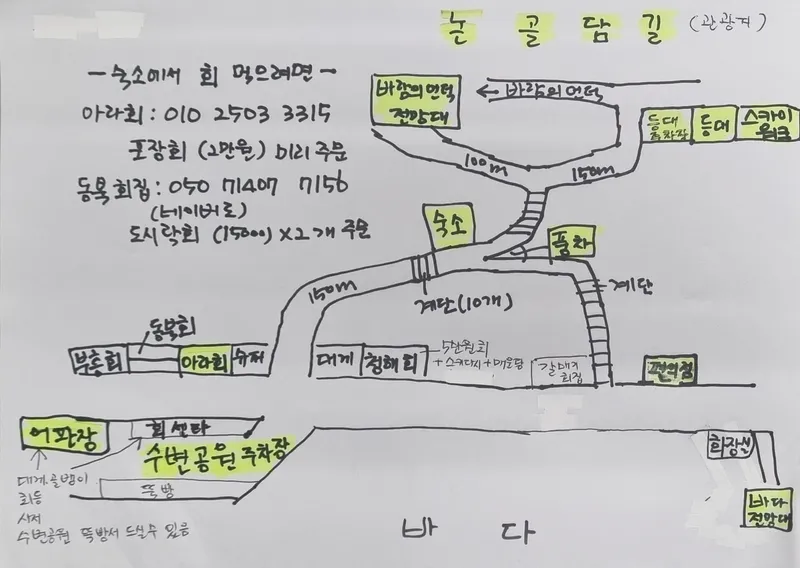 논골담길 (관광지)
- 숙소에서 회 먹으려면 -
아라회 : 010 2503 3315
포장회 (2만원) 미리 주문
동북회집 : 050 71407 7156
(네이버로)
도시락회 (15000) x 2개 주문
바람의언덕
전망대
← 바람의언덕
등대
주차장
등대
스카이
워크
100m
150m
숙소
풍차
계단
150m
계단(10개)
동북회
부흥회
아라회
슈퍼
대게
청해회
5만원회
+ 스끼다시 + 매운탕
갈매기
회집
편의점
어판장
회센타
수변공원 주차장
뚝방
대게.골뱅이
회등
사서
수변공원 뚝방서 드실수 있음
화장실
바다
전망대
바 다